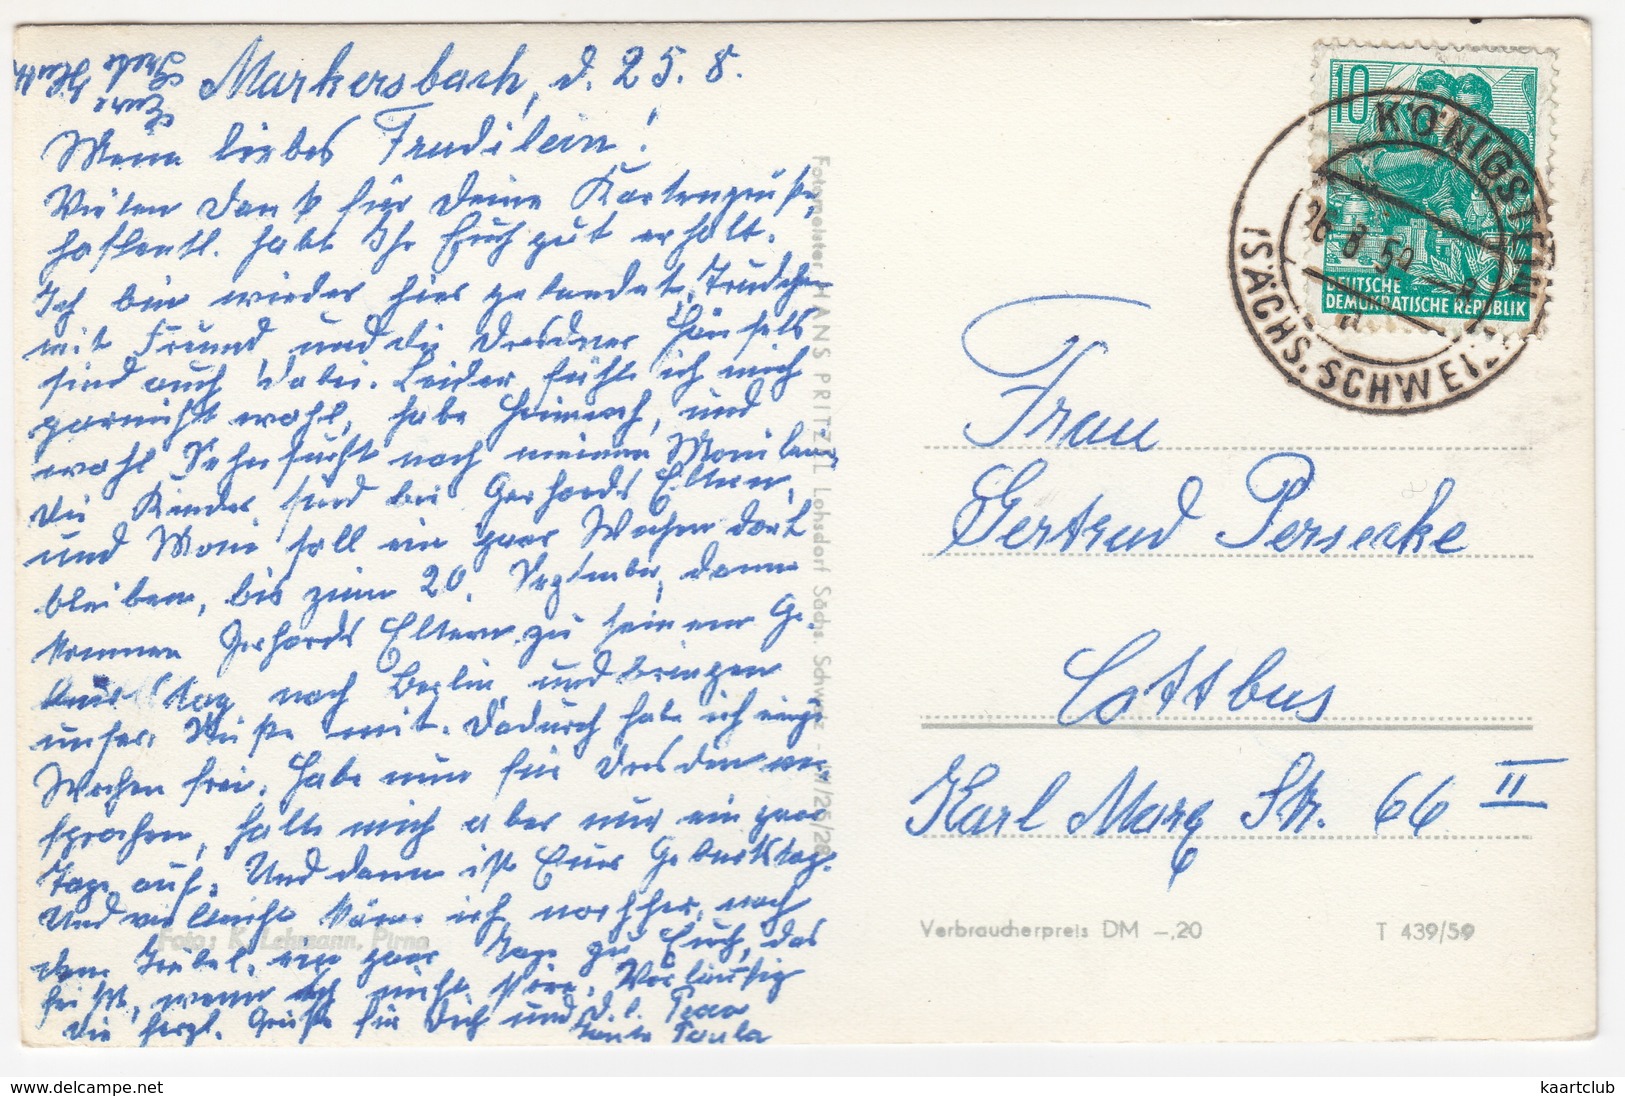 Markersbach, d. 25. 8.
Mein liebes Trudilein!
Vielen Dank für Deine Kartengrüße,
hoffentl. habt Ihr Euch gut erholt.
Ich bin wieder hier gelandet, Trudchen
mit Freund, und die Dresdner Hänsels
sind auch dabei. Leider fühle ich mich
garnicht wohl, habe Heimweh, und
wohl Sehnsucht nach meinem Monilein,
die Kinder sind bei Gerhards Eltern,
und Moni soll ein paar Wochen dort
bleiben, bis zum 20. September, dann
kommen Gerhards Eltern zu seinem Ge-
burtstag nach Berlin, und bringen
unser Süße mit. Dadurch habe ich einige
Wochen frei. Habe nun für Dresden ver-
sprochen, halte mich aber nur ein paar
Tage auf. Und dann ist Eure Geburtstage.
Und vielleicht käme ich nachher, nach
dem Trubel, ein paar Tage zu Euch, das
heißt, wenn ich nicht störe. Vorläufig
die herzl. Grüße für Dich und d. l.
Tante Paula
Foto: K. Lehmann, Pirna
Fotomeister HANS PRITZEL Lohsdorf Sächs. Schweiz - IV/26/28
10
DEUTSCHE
DEMOKRATISCHE REPUBLIK
KÖNIGSTEIN
26. 8. 59
(SÄCHS. SCHWEIZ)
Frau
Gertrud Persecke
Cottbus
Karl Marx Str. 66 II
Verbraucherpreis DM -,20
T 439/59
kaartclub